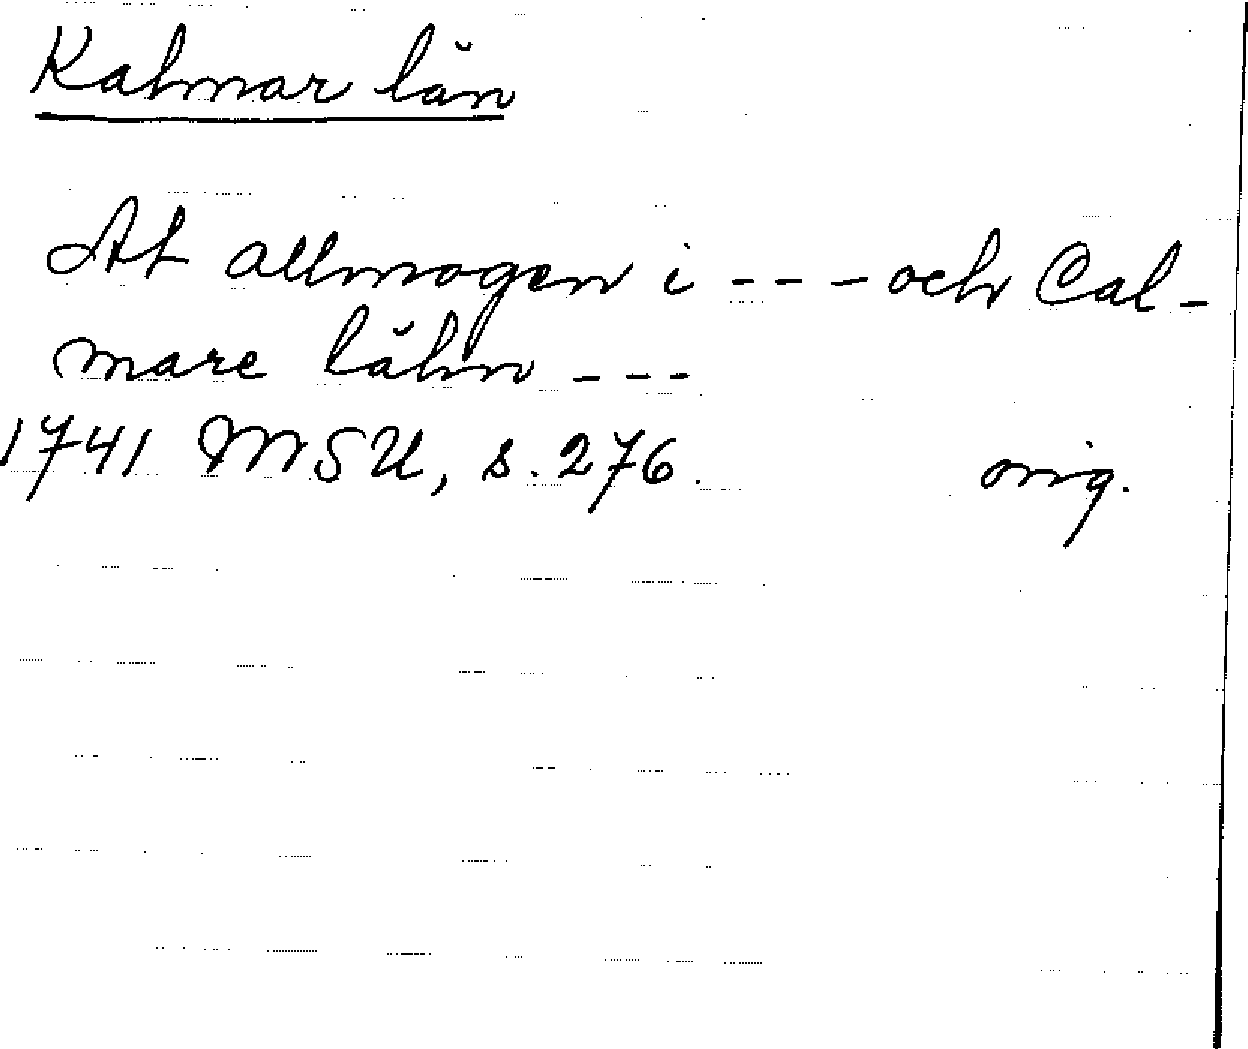 Kalmar län
At allmogen i - - - och Cal-
mare lähn - - -
1741 MSU, s. 276. orig.